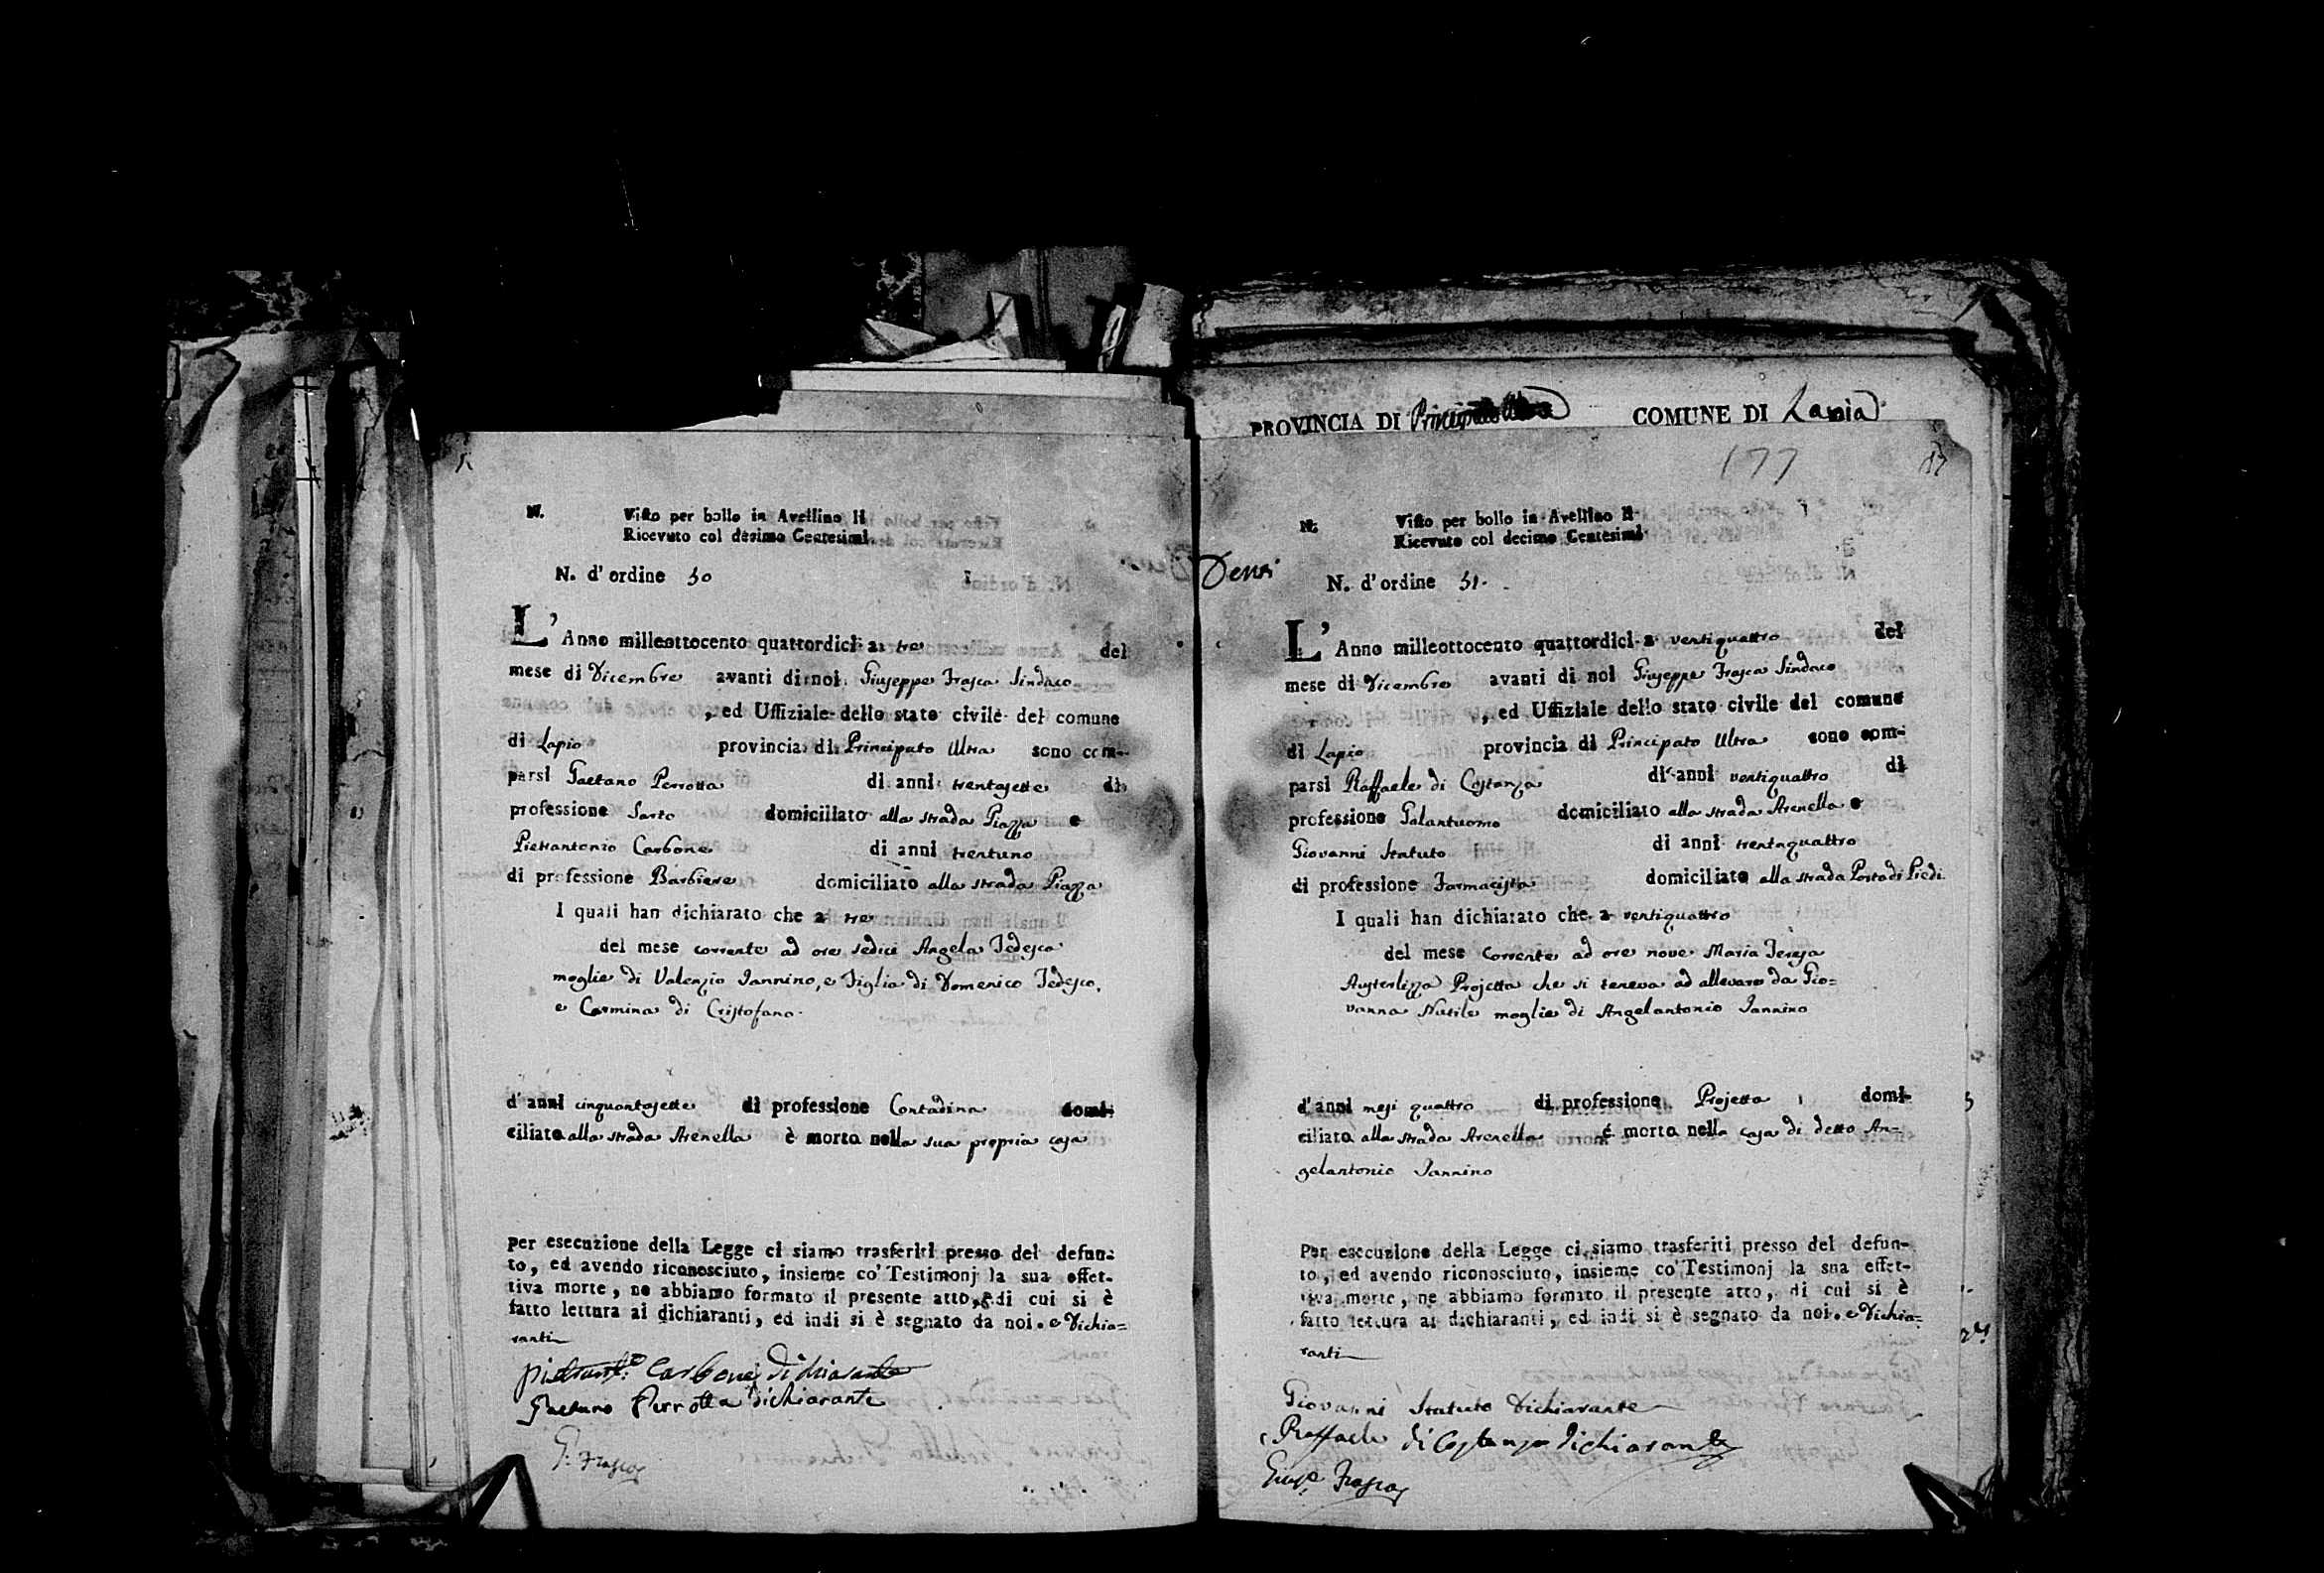 N. Visto per bollo in Avellino li
Ricevuto col decimo Centesimi
N. d'ordine 50
L'Anno milleottocento quattordici a tre del
mese di Dicembre avanti di noi Giuseppe Frasca Sindaco
, ed Uffiziale dello stato civile del comune
di Lapio provincia di Principato Ultra sono com-
parsi Gaetano Perrotta di anni trentasette di
professione Sarto domiciliato alla strada Piazza e
Pietrantonio Carbone di anni trentuno
di professione Barbiere domiciliato alla strada Piazza
I quali han dichiarato che a tre
del mese corrente ad ore sedici Angela Tedesco
moglie di Valenzio Iannino, e Figlia di Domenico Tedesco,
e Carmina di Cristofano.
d'anni cinquantasette di professione Contadina domi-
ciliata alla strada Arenella è morta nella sua propria casa
Per esecuzione della Legge ci siamo trasferiti presso del defun-
to, ed avendo riconosciuto, insieme co' Testimonj la sua effet-
tiva morte, ne abbiamo formato il presente atto, di cui si è
fatto lettura ai dichiaranti, ed indi si è segnato da noi. e Dichia=
ranti
Pietrant.º Carbone dichiarante
Gaetano Perrotta dichiarante
G. Frasca
PROVINCIA DI Principato Ultra COMUNE DI Lapio
177
N. Visto per bollo in Avellino li
Ricevuto col decimo Centesimi
N. d'ordine 51.
L'Anno milleottocento quattordici a ventiquattro del
mese di Dicembre avanti di noi Giuseppe Frasca Sindaco
, ed Uffiziale dello stato civile del comune
di Lapio provincia di Principato Ultra sono com-
parsi Raffaele di Costanza di anni ventiquattro di
professione Galantuomo domiciliato alla strada Arenella e
Giovanni Statuto di anni trentaquattro
di professione Farmacista domiciliato alla strada Porta di Piedi
I quali han dichiarato che a ventiquattro
del mese corrente ad ore nove Maria Teresa
Austerlizza Projetta che si teneva ad allevare da Gio=
vanna Nutile moglie di Angelantonio Iannino
d'anni mesi quattro di professione Projetta domi-
ciliata alla strada Arenella è morta nella casa di detto An=
gelantonio Iannino
Per esecuzione della Legge ci siamo trasferiti presso del defun-
to, ed avendo riconosciuto, insieme co' Testimonj la sua effet-
tiva morte, ne abbiamo formato il presente atto, di cui si è
fatto lettura ai dichiaranti, ed indi si è segnato da noi. e Dichia=
ranti
Giovanni Statuto Dichiarante
Raffaele di Costanza dichiarante
Gius.e Frasca